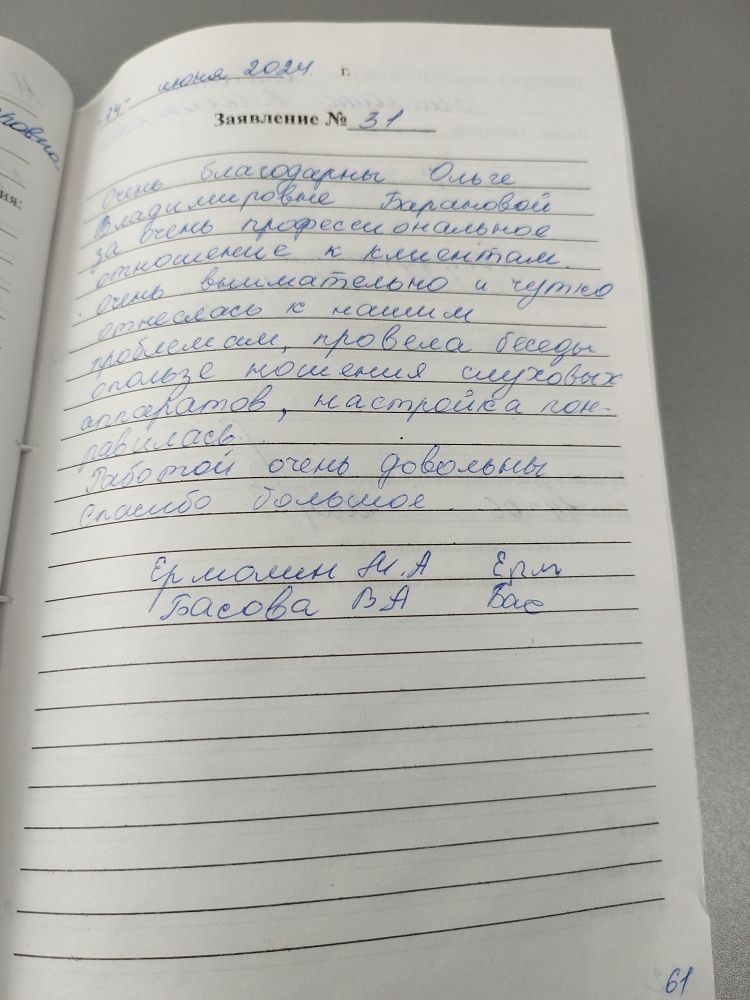 "14" июня 2024. г.
Заявление № 31
Очень благодарны Ольге
Владимировне Барановой
за очень профессиональное
отношение к клиентам.
очень внимательно и чутко
отнеслась к нашим
проблемам, провела беседы
опользе ношения слуховых
аппаратов, настройка пон-
равилась.
Работой очень довольны
спасибо большое.
Ермолин М.А Ерм
Басова ВА Бас
61